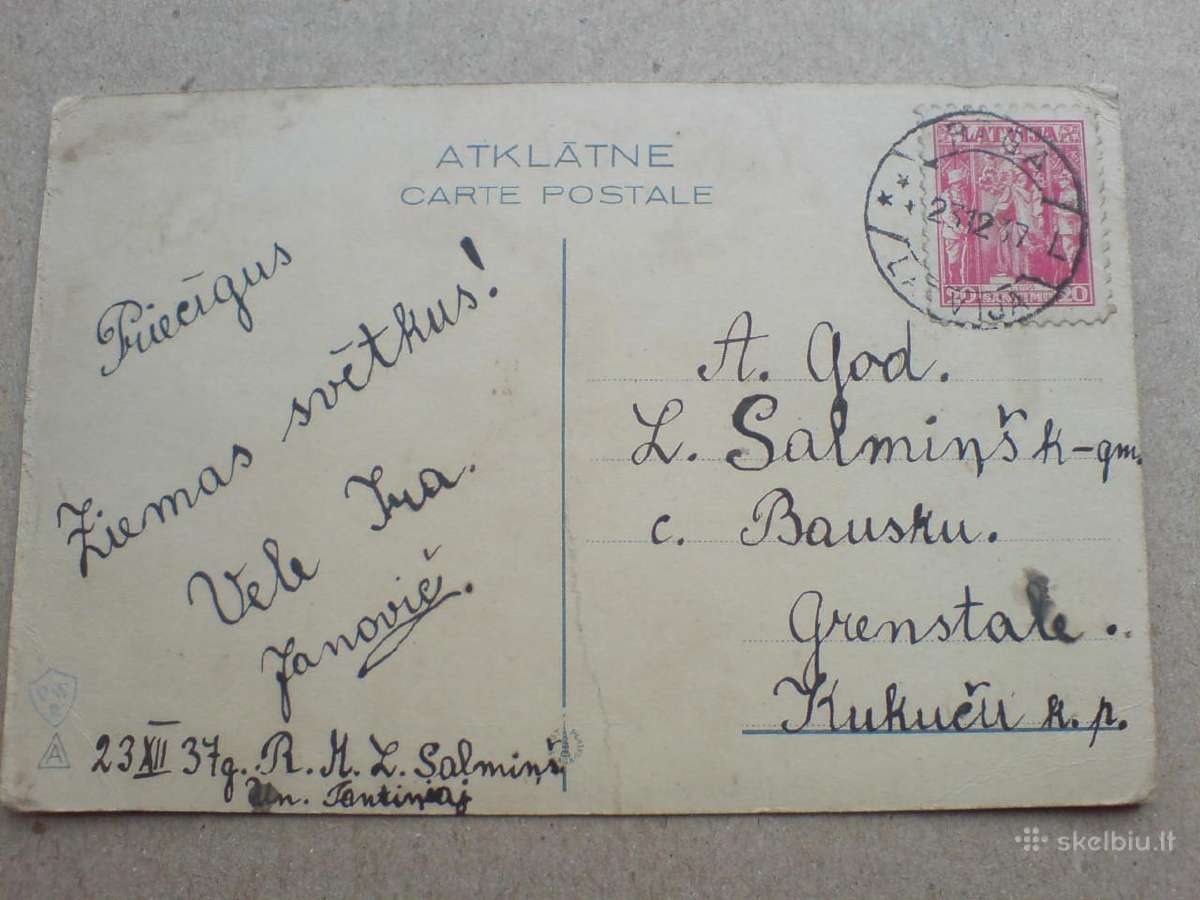 ATKLĀTNE
CARTE POSTALE
LATVIJA
20 SANTIMU 20
RĪGA
23.12.37
L
LATVIJA
Priecīgus
Ziemas svētkus!
Vēle Ira
Janovič.
23 XII 37g. R. M. L. Salmiņš
un. Tantiņai
A. God.
L. Salmiņš k-gm.
c. Bausku.
Grenstale.
Kukuču k. p.
A
skelbiu.lt